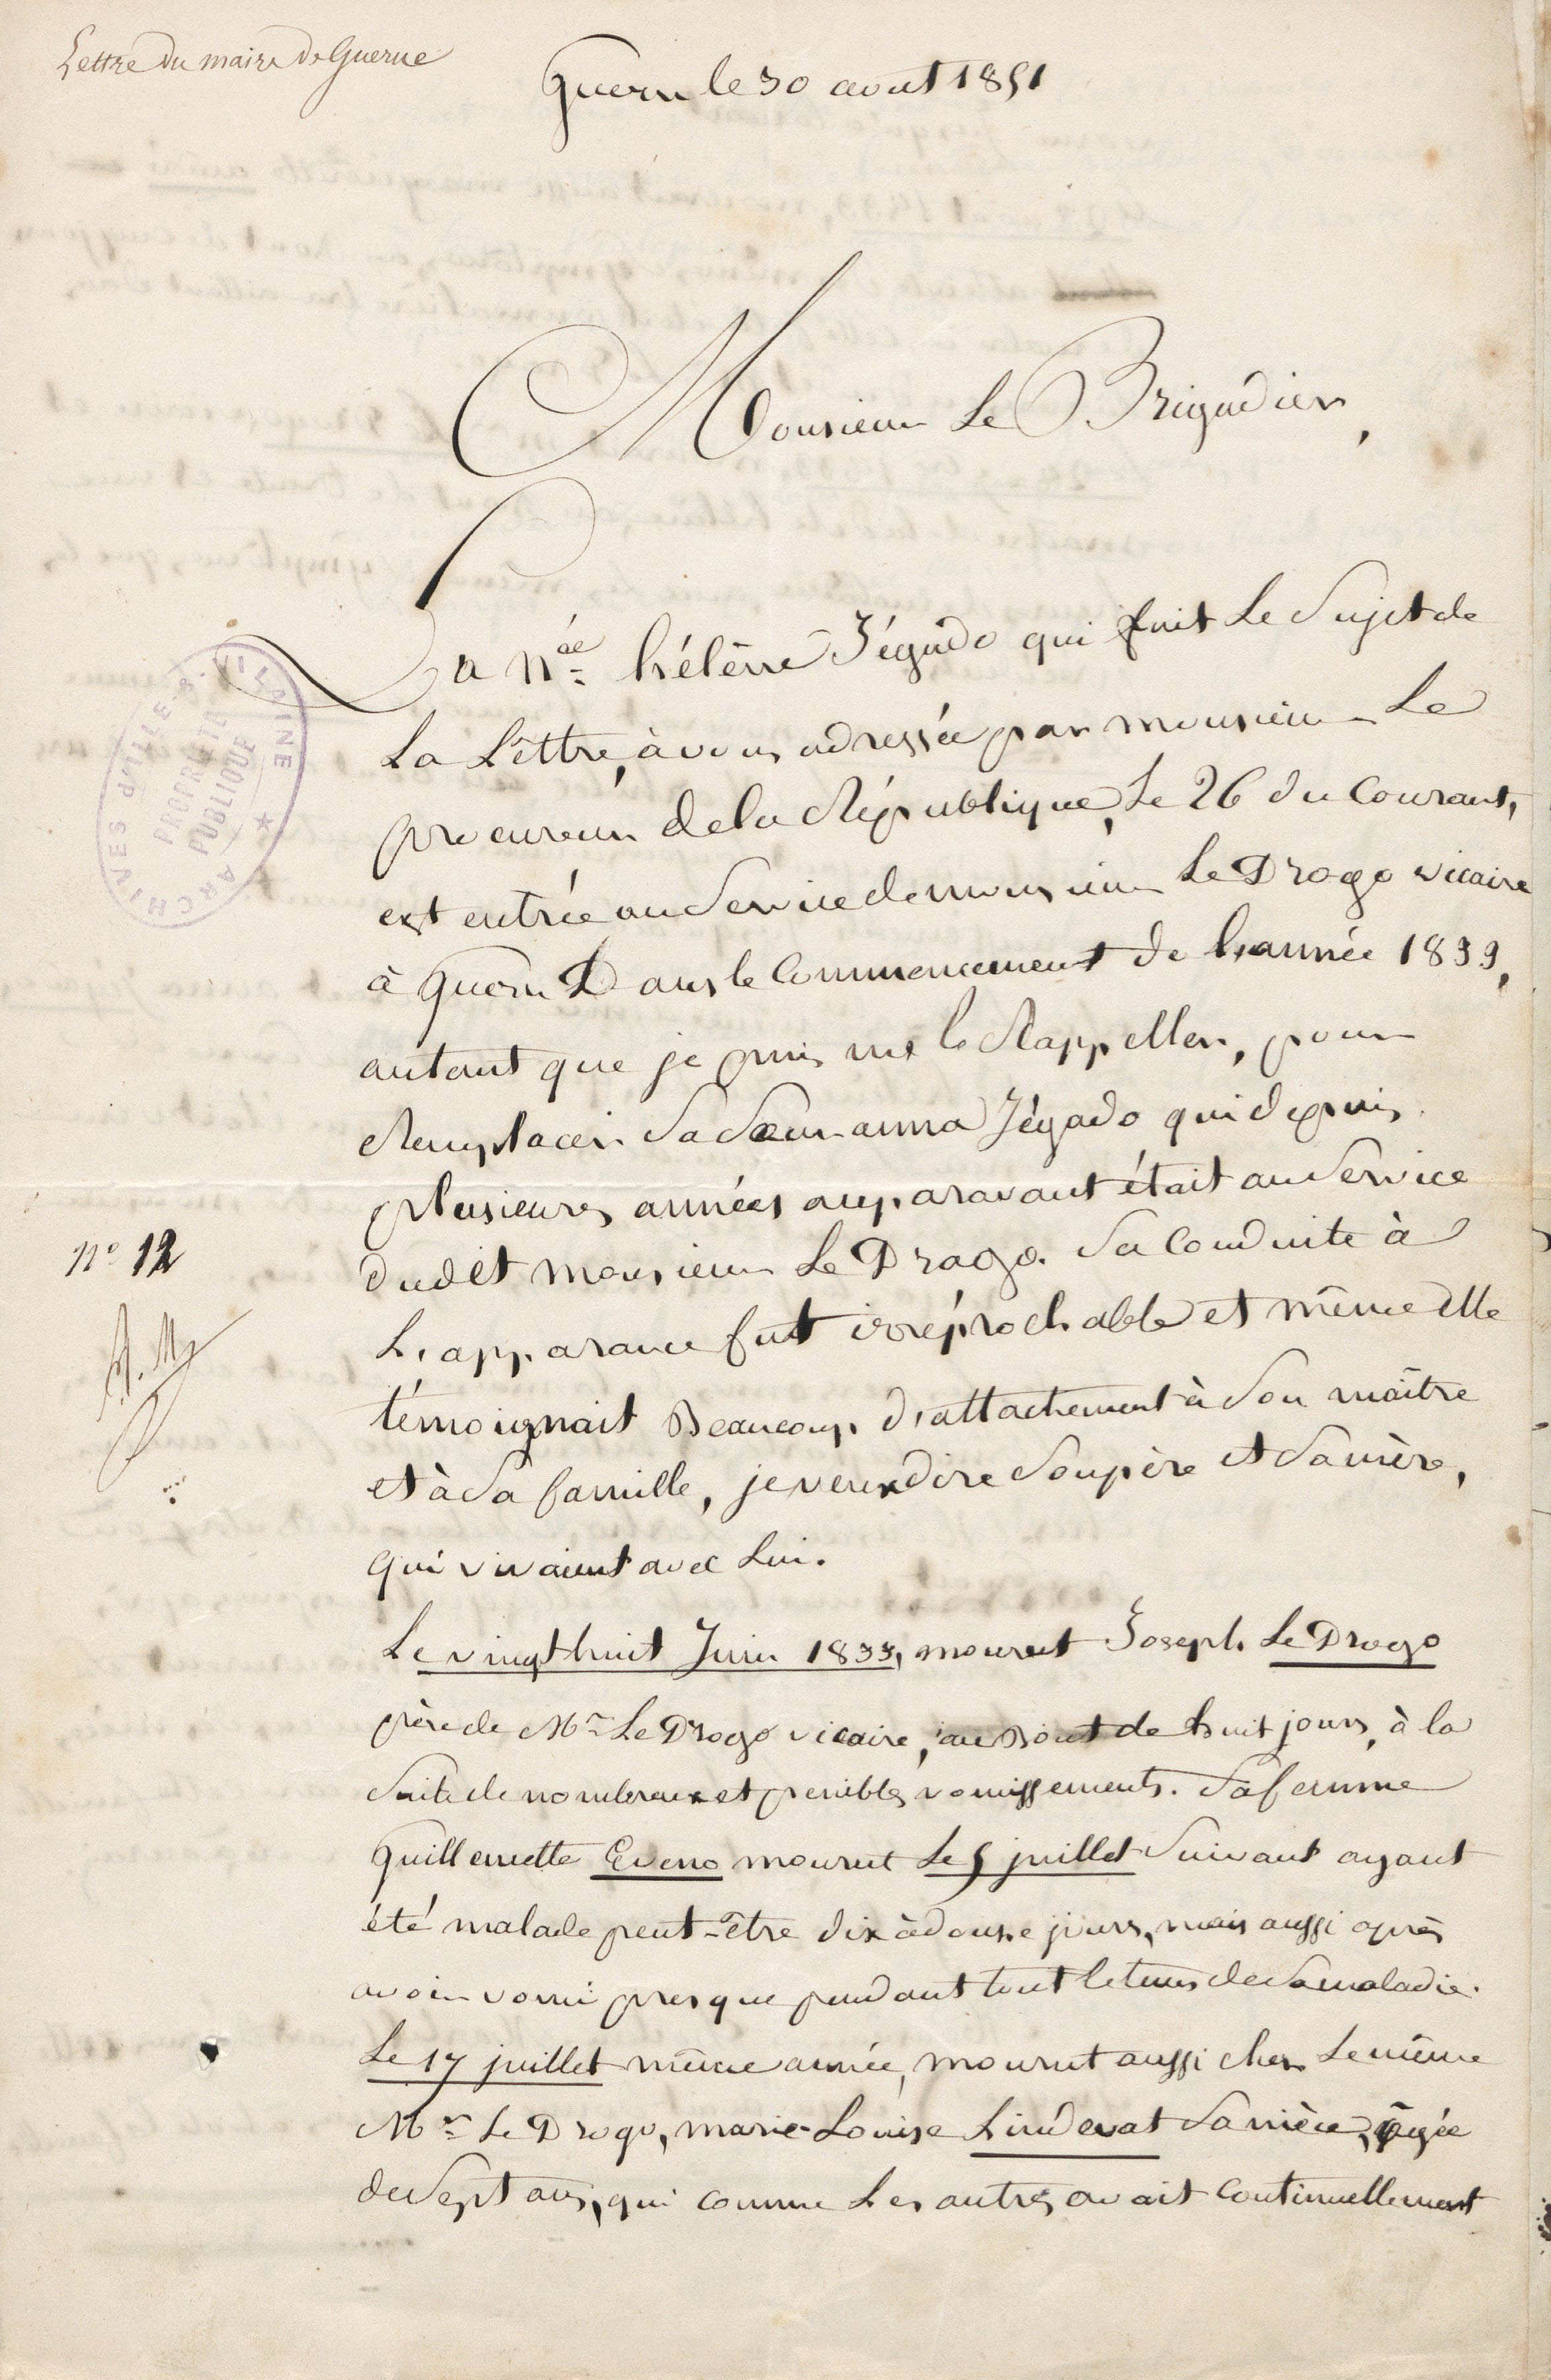 Lettre du maire de Guerne
Guern le 30 aout 1851
Monsieur Le Brigadier,
La née hélène Jégado qui fait Le Sujet de
La Lettre, à vous adressée par monsieur Le
procureur de la République, Le 26 du Courant,
est entrée au Service de monsieur Le Drogo vicaire
à Guern Dans le Commencement de l'année 1833,
autant que je puis me le Rappeller, pour
Remplacer Sa Sœur anna Jégado qui depuis
plusieurs années auparavant était au Service
dudit monsieur Le Drogo. Sa Conduite à
L'apparance fut irréprochable et même elle
témoignait Beaucoup d'attachement à Son maître
et à Sa famille, je veux dire Son père et Sa mère,
qui vivaient avec Lui.
Le vingt huit Juin 1833, mourut Joseph Le Drogo
père de Mr Le Drogo vicaire, au Bout de huit jours, à la
Suite de nombreux et penibles vomissements. Sa femme
Guillemette Eveno mourut Le 5 juillet Suivant ayant
été malade peut-être dix à douze jours, mais aussi après
avoir vomi presque pendant tout le tems de Sa maladie.
Le 17 juillet même année, mourut aussi chez Le même
Mr Le Drogo, marie-Louise Lindevat Sa nièce, âgée
de Sept ans, qui comme Les autres avait Continuellement
n° 12
ARCHIVES d'ILLE-&-VILAINE
PROPRIÉTÉ
PUBLIQUE